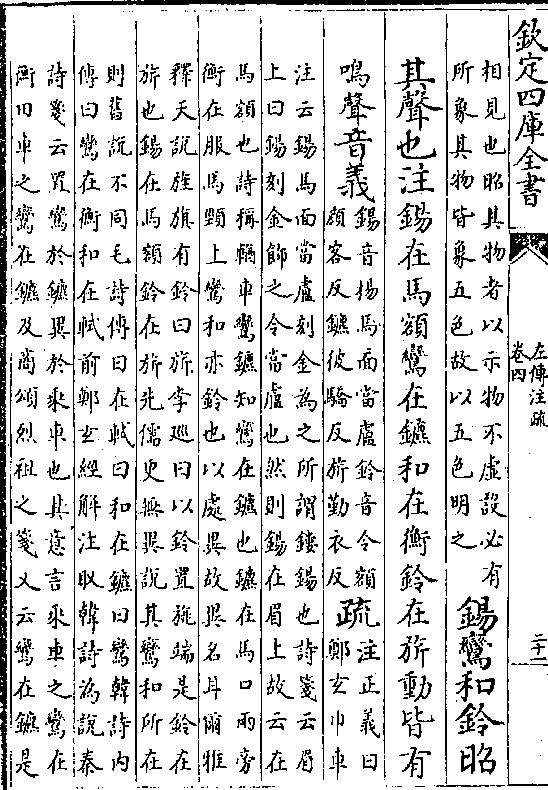 欽定四庫全書
左傳注疏
卷四
二十二
相見也昭其物者以示物不虛設必有
所象其物皆象五色故以五色明之
鍚鸞和鈴昭
其聲也注鍚在馬額鸞在鑣和在衡鈴在旂動皆有
鳴聲音義
鍚音揚馬面當盧鈴音令額
顏客反鑣彼驕反旂勤衣反
疏
注正義曰
鄭玄巾車
注云鍚馬面當盧刻金為之所謂鏤鍚也詩箋云眉
上曰鍚刻金飾之今當盧也然則鍚在眉上故云在
馬額也詩稱輶車鸞鑣知鸞在鑣也鑣在馬口兩旁
衡在服馬頸上鸞和亦鈴也以處異故異名耳爾雅
釋天說旌旗有鈴曰旂李巡曰以鈴置旐端是鈴在
旂也鍚在馬額鈴在旂先儒更無異說其鸞和所在
則舊說不同毛詩傳曰在軾曰和在鑣曰鸞韓詩內
傳曰鸞在衡和在軾前鄭玄經解注取韓詩為說秦
詩箋云置鸞於鑣異於乘車也其意言乘車之鸞在
衡田車之鸞在鑣及商頌烈祖之箋又云鸞在鑣是